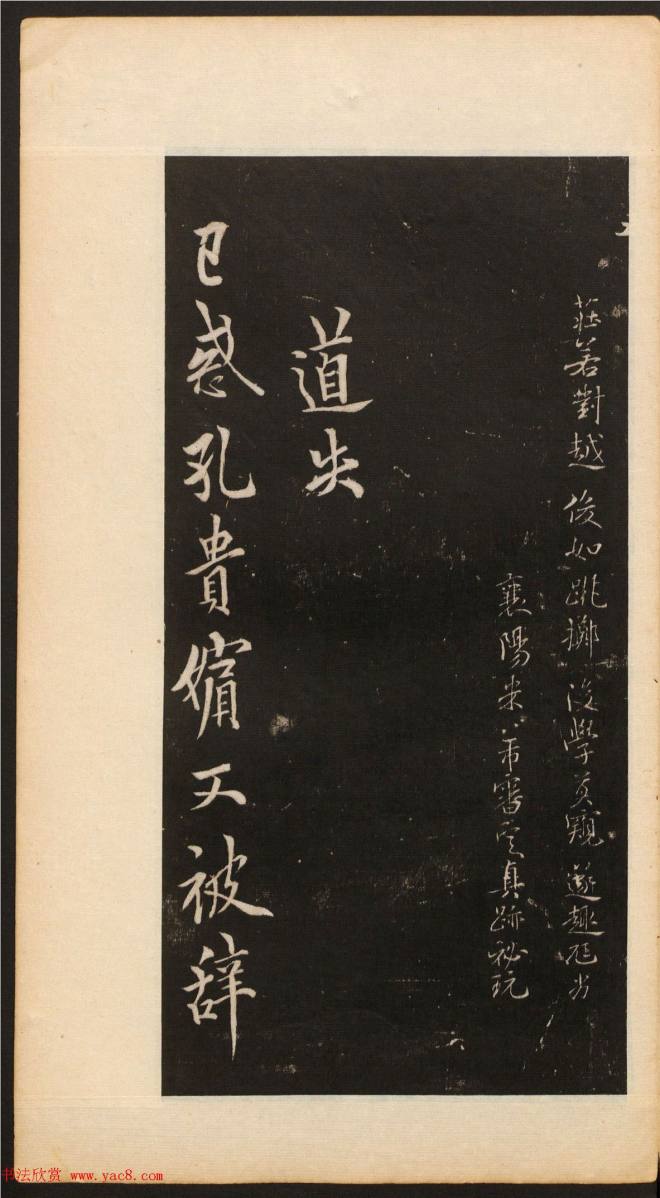 莊若對越俊如跳擲後學莫窺遂趣尫劣
襄陽米芾審定真跡祕玩
道失
已惑孔貴嬪又被辭
书法欣赏 www.yac8.com